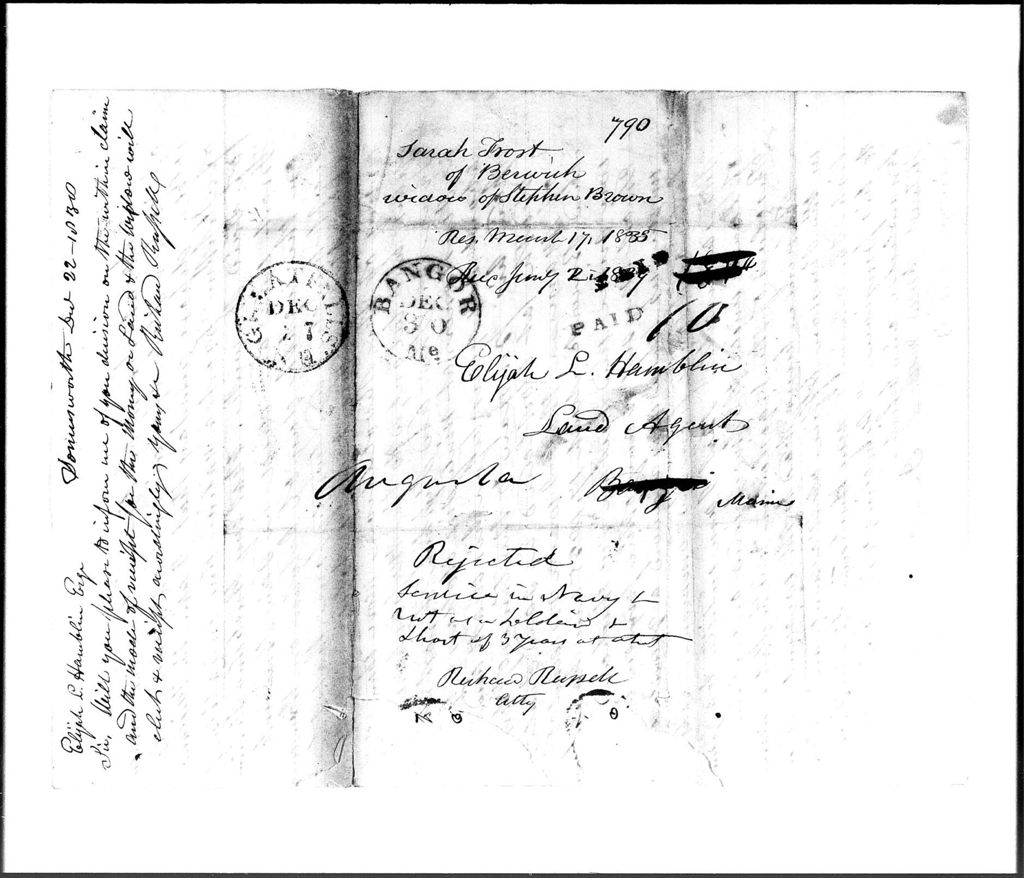 790
Sarah Frost
of Berwick
widow of Stephen Brown
Res. March 17, 1835
Jany 2. 1839
GREAT FALLS
DEC
27
BANGOR
DEC
30
Me
PAID
10
Elijah L. Hamblin
Land Agent
Augusta
Maine
Rejected
Service in Navy &
not as a Soldier &
short of 3 years at that
Richard Russell
Atty
Somersworth Dec 22-
Elijah L. Hamblin Esqr
Sir, Will you please to inform me of your decision on the within claim
and the mode of receipt for the money or Land & the widow will
elect & receipt accordingly yours &c Richard Russell